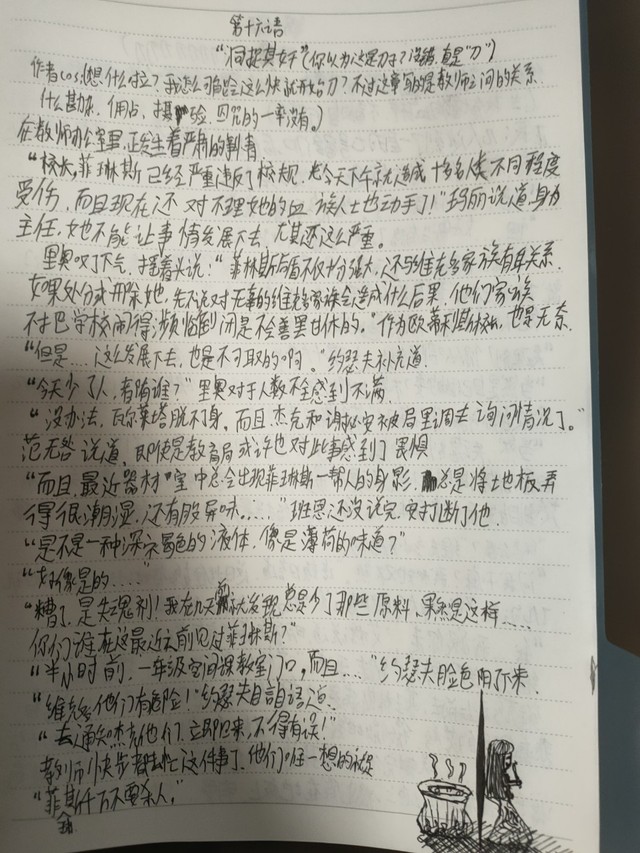 第十六话
"洞捉其奸"(你以为这是刀子?没错,真是"刀")
作者cos:(想什么对立?我怎么可能会这么快就开始刀?不过这章写的是教师之间的关系
什么勘、佣占、摸验、囚咒的一率没有。)
在教师办公室里,正发生着严肃的事情
"校长,菲琳斯已经严重违反了校规,光今天下午就造成十多名人类不同程度
受伤,而且现在还对不理她的血族人士也动手了!"玛丽说道,身为
主任,她不能让事情发展下去,尤其还这么严重。
里奥叹了下气,摇着头说:"菲林斯后盾不仅十分强大,还与维克多家族有着关系
如果处分或开除她,先不说对无辜的维克多家族会造成什么后果,他们家族
不把学校闹得濒临倒闭是不会善罢甘休的。"作为欧蒂利斯校长,也是无奈.
"但是....这么发展下去,也是不可取的啊。"约瑟夫补充道.
"今天少了人,有谁?"里奥对于人数不全感到不满.
"没办法,瓦尔莱塔脱不开身,而且杰克和谢必安被局里调去询问情况了。"
范无咎说道,即使是教育局或许也对此事感到了畏惧
"而且,最近器材室中总会出现菲琳斯一帮人的身影,总是将地板弄
得很潮湿,还有股异味....."班恩还没说完,安打断了他.
"是不是一种深褐色的液体,像是薄荷的味道?"
"好像是的....."
"糟了,是失魂剂!我在几天前就发现总是少了那些原料,果然是这样.....
你们谁在这最近之前见过菲琳斯?"
"半小时前,一年级空间课教室门口,而且..."约瑟夫脸色阴了下来.
"维克多他们有危险!"约瑟夫自言自语道.
"去通知杰克他们,立即回来,不得有误!"
教师们快步都去忙这件事了,他们唯一想的就是
"菲琳斯千万不要杀人。"